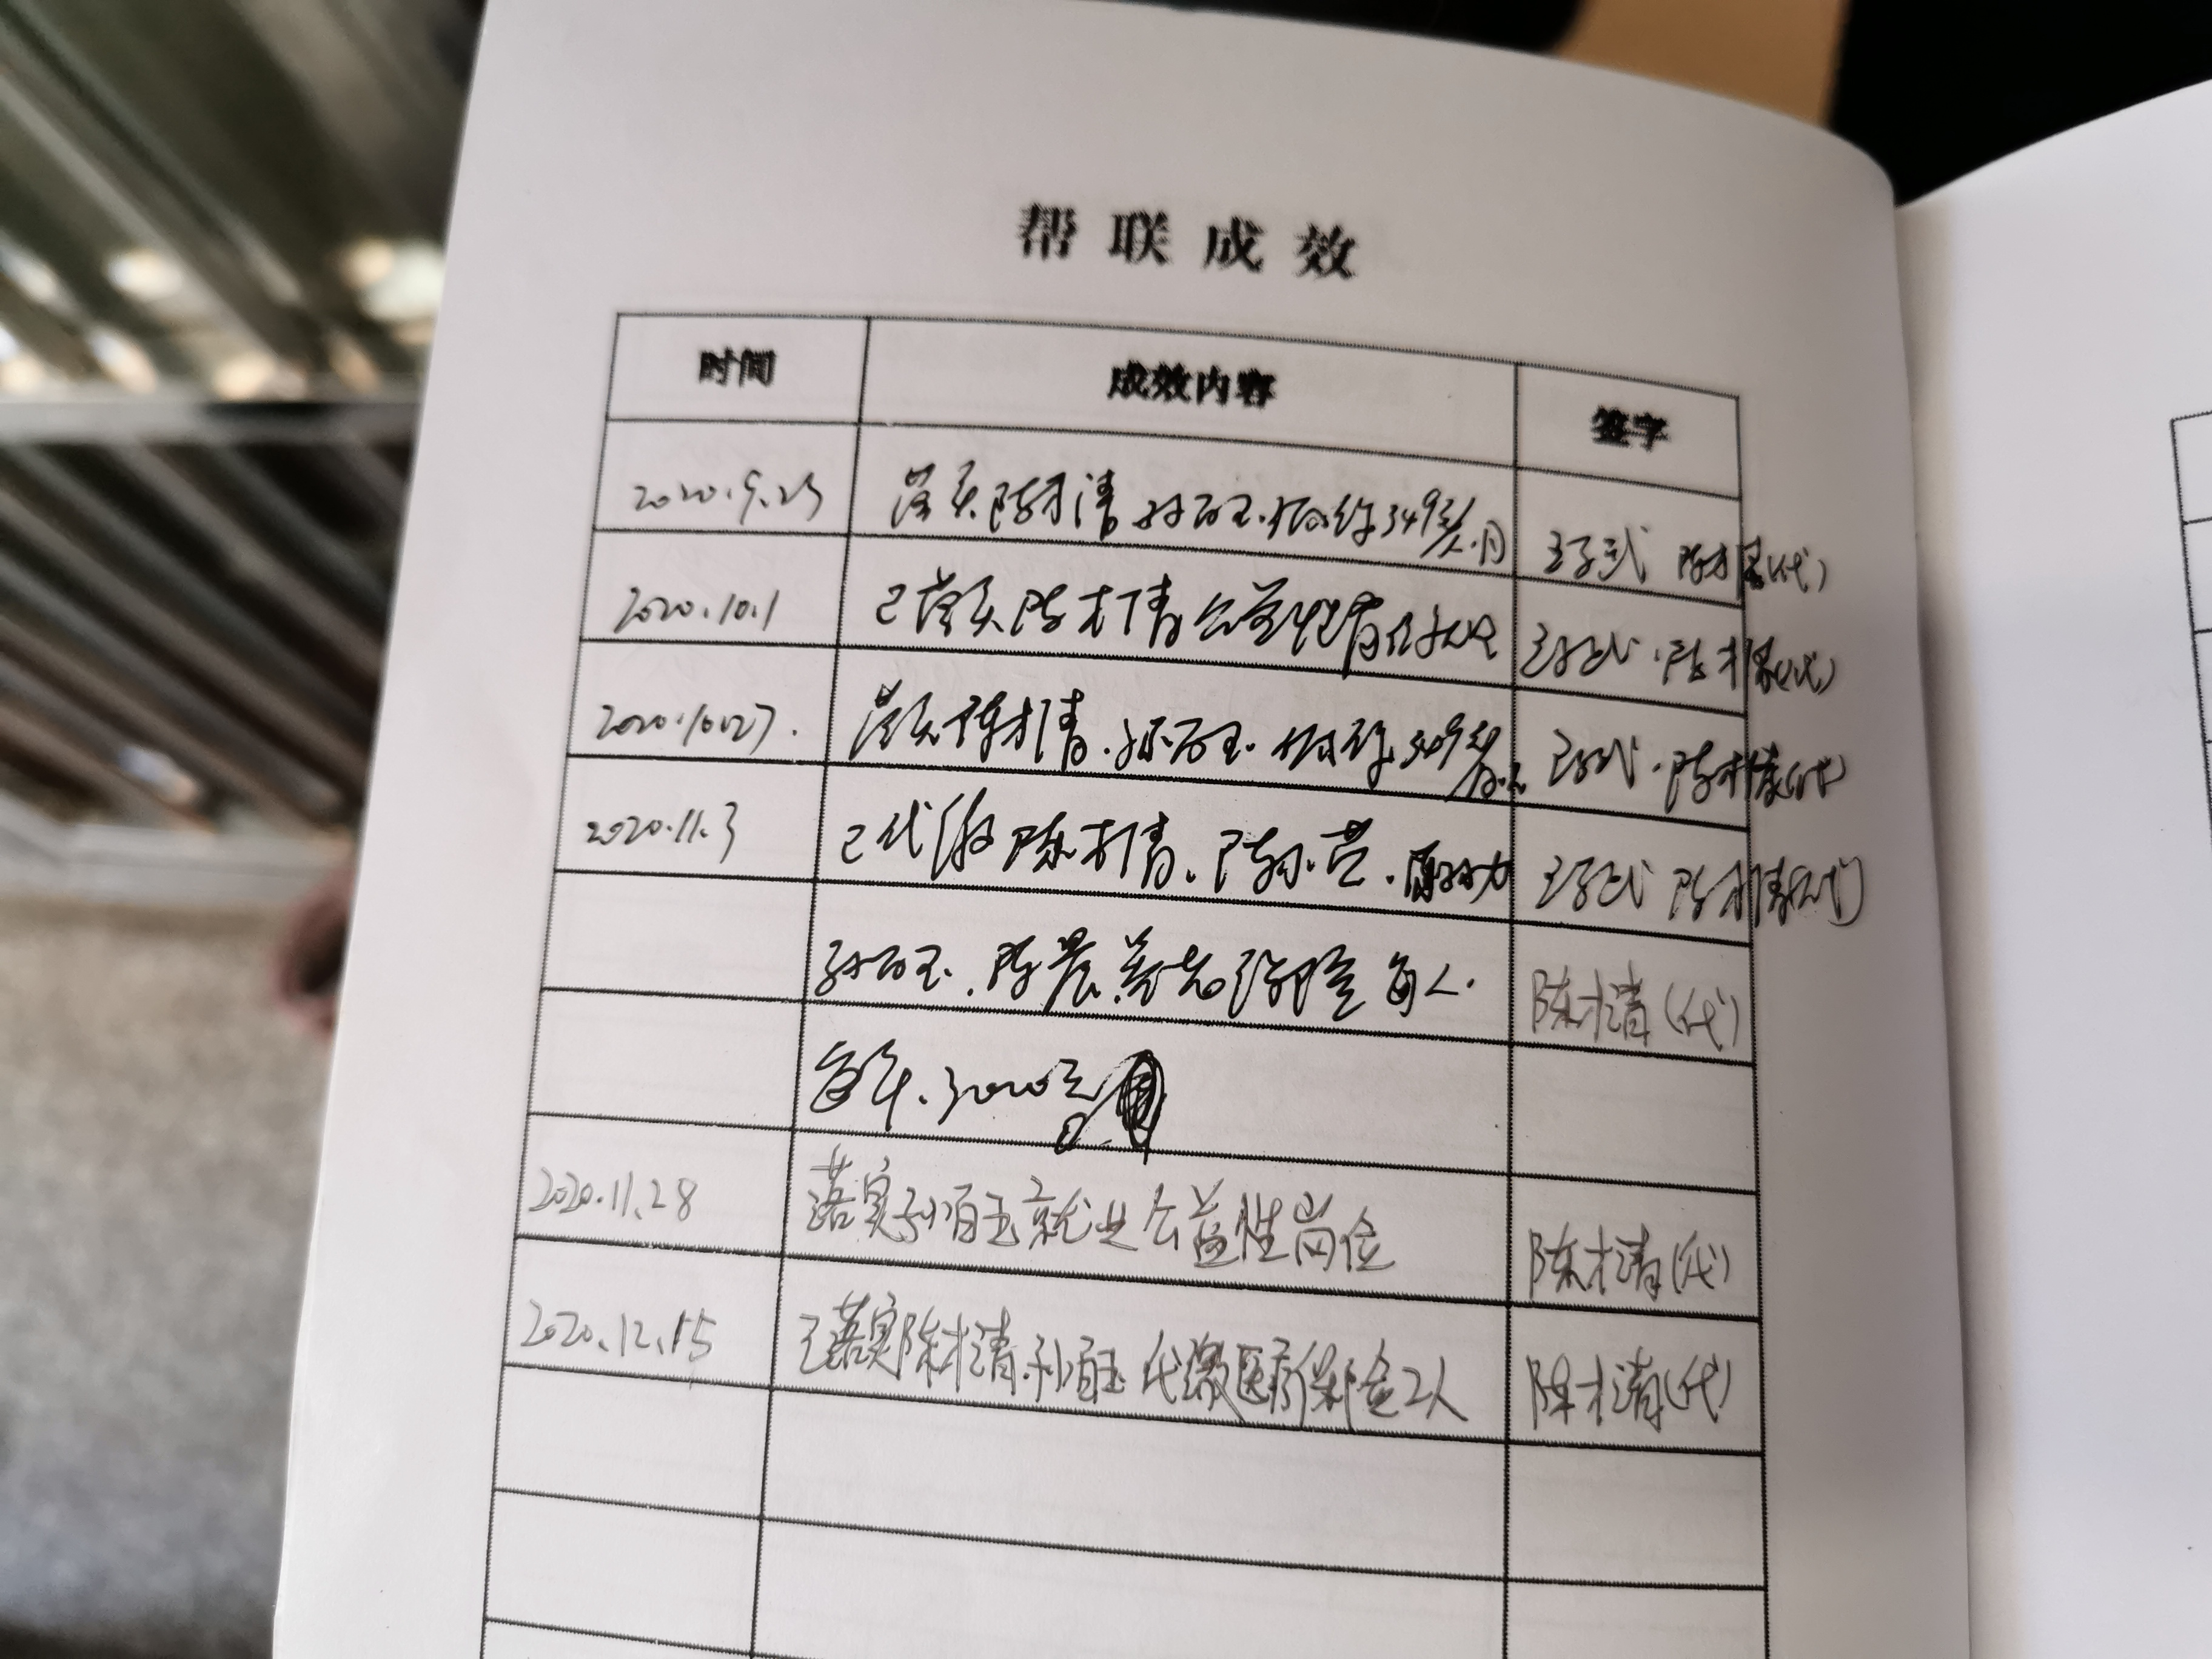 帮联成效
时间 成效内容 签字
2020.9.25 落实陈才清 孙百玉.低保349元/人.月 陈才清(代)
2020.10.1 已落实陈才清公益性岗位 陈才清(代)
2020.10.27. 落实陈才清.孙百玉.低保349元 陈才清(代)
2020.11.3 已代缴陈才清、 陈才清(代)
孙百玉.陈晨 养老保险每人. 陈才清(代)
每年.3000元
2020.11.28 落实孙百玉就业公益性岗位 陈才清(代)
2020.12.15 已落实陈才清.孙百玉代缴医疗保险2人 陈才清(代)